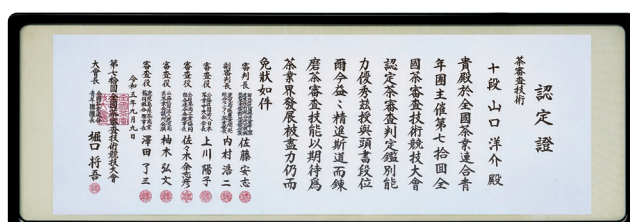 認定證
茶審査技術
十段 山口 洋介 殿
貴殿於全國茶業連合青
年團主催第七拾回全
國茶審査技術競技大會
認定茶審査判定鑑別能
力優秀茲授與頭書段位
爾今益〻精進斯道而錬
磨茶審査技能以期待爲
茶業界發展被盡力仍而
免狀如件
審判長 佐藤 安志
副審判長 内村 浩二
審査役 上川 陽子
審査役 佐々木 余志彦
審査役 柚木 弘文
審査役 澤田 了三
令和三年九月九日
第七拾回全國茶審査技術競技大會
大會長 堀口 将吾